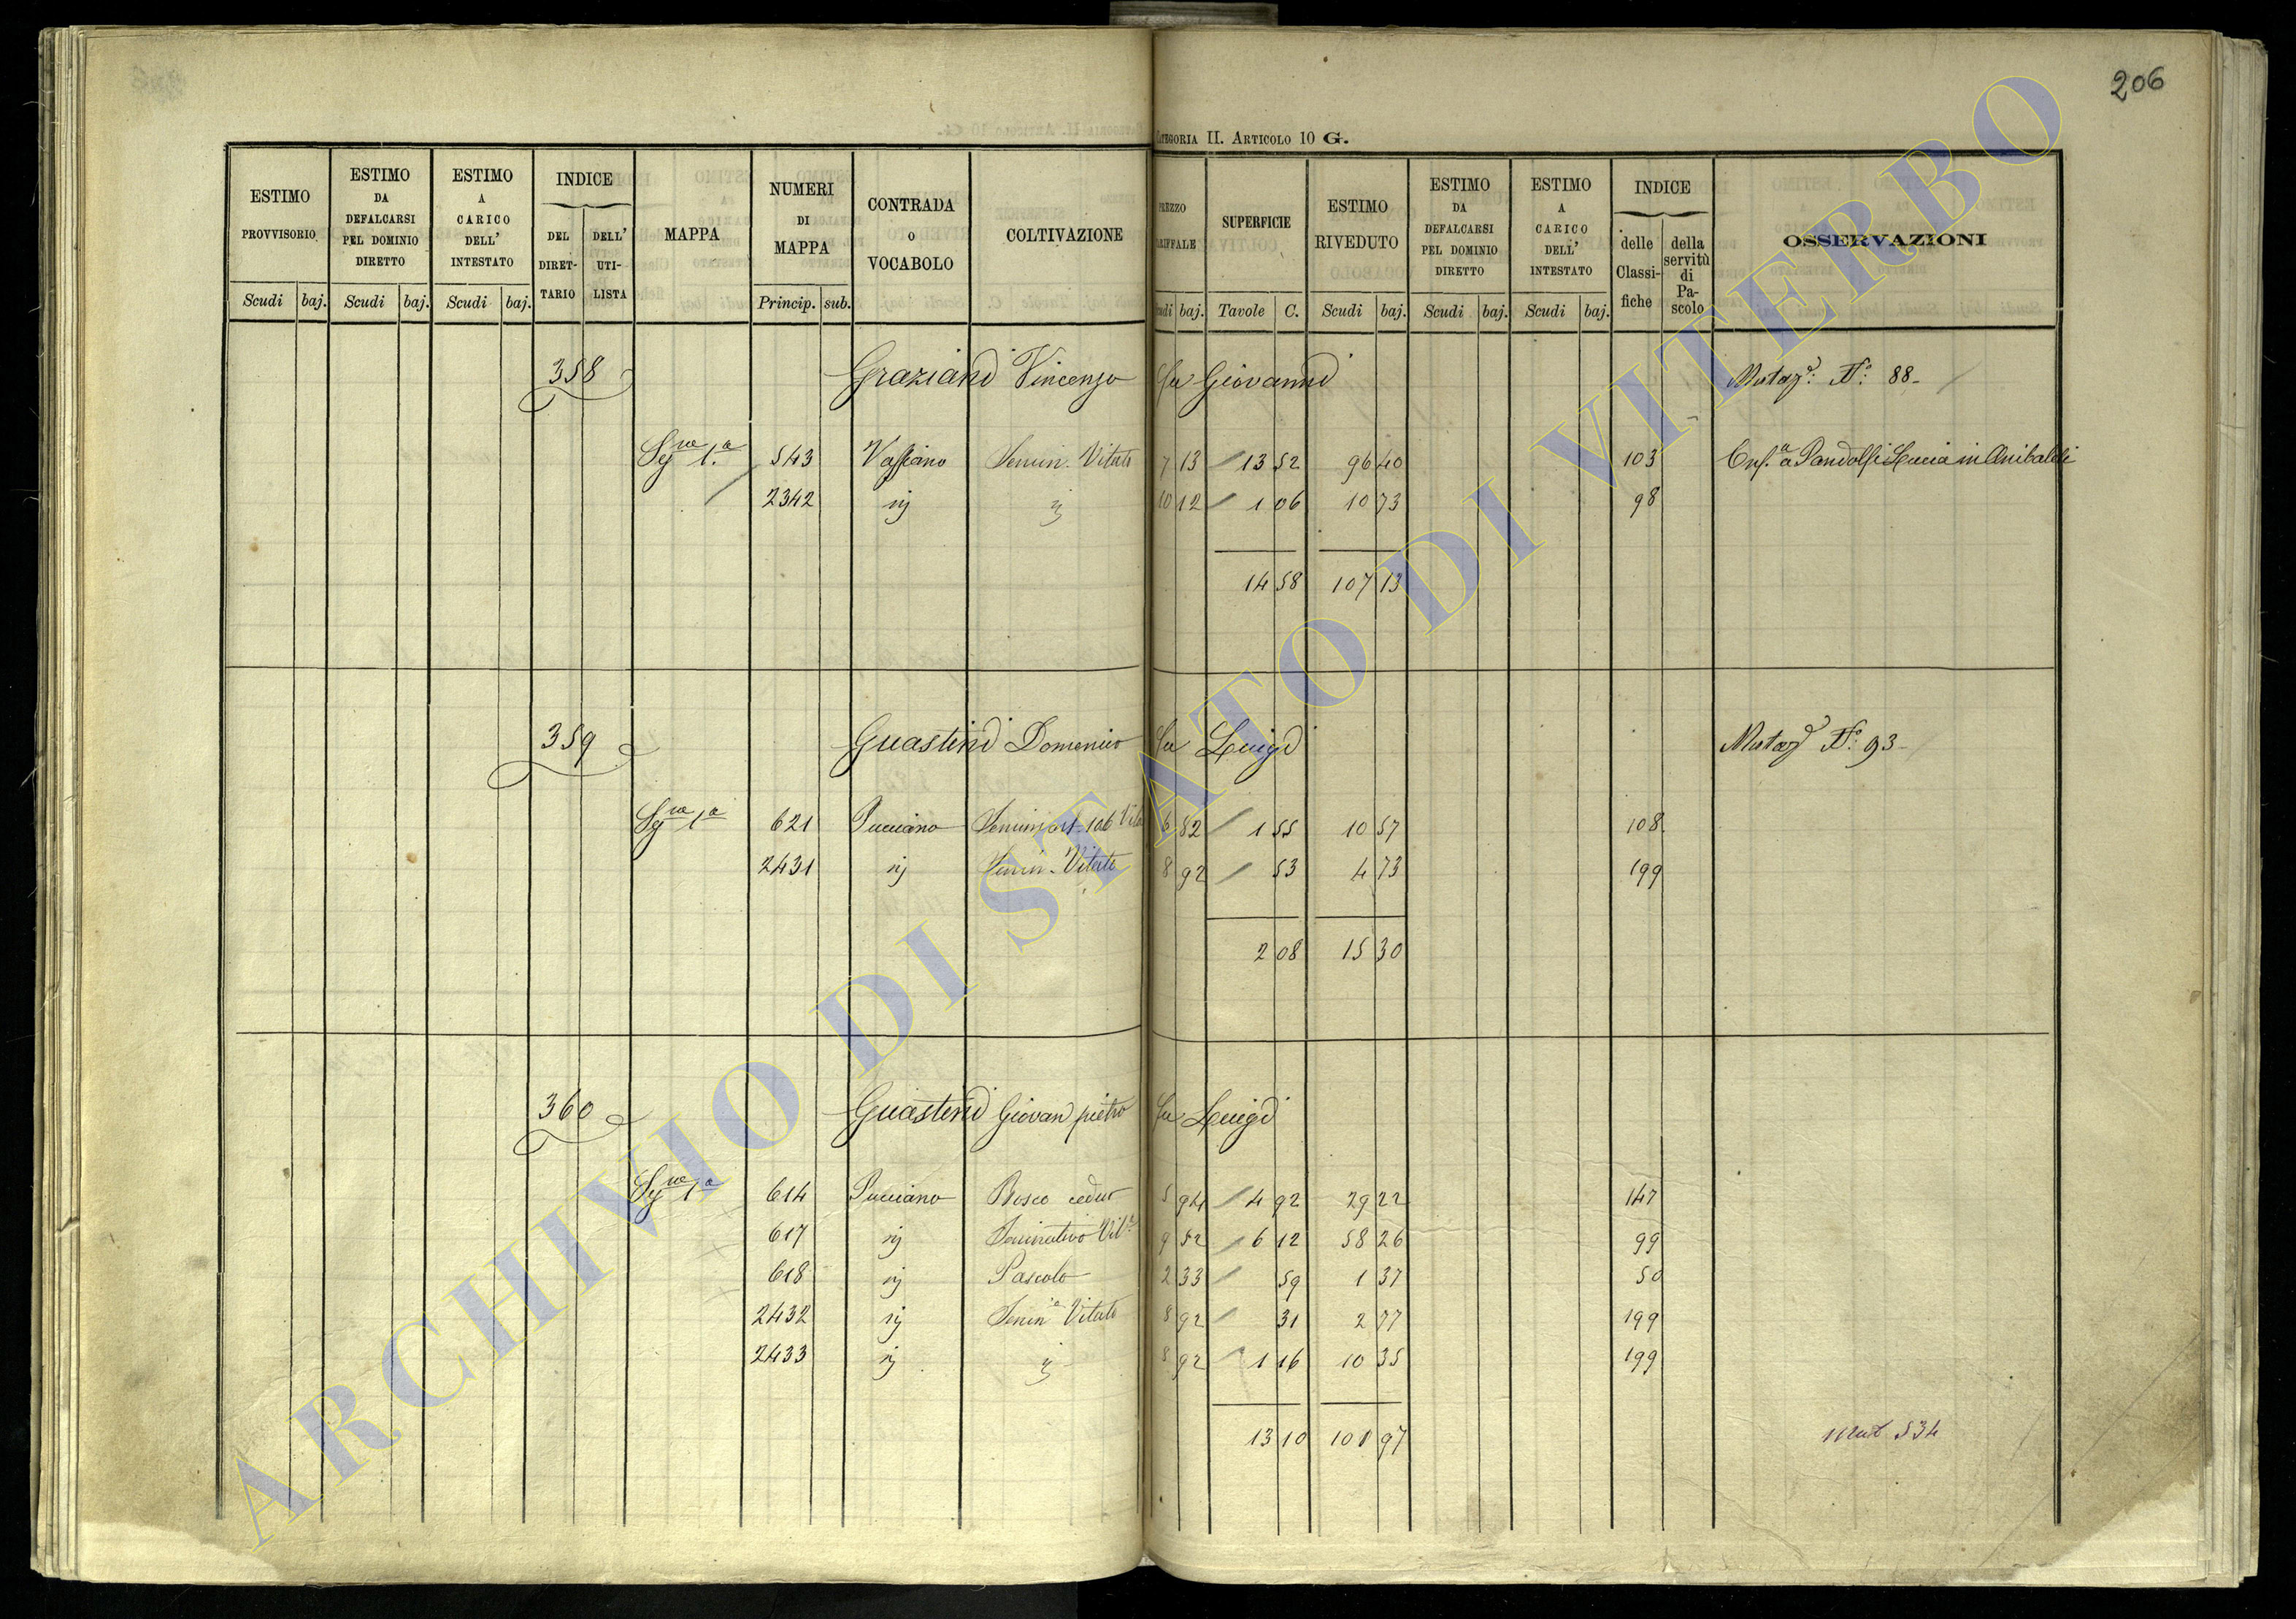 206
CATEGORIA II. ARTICOLO 10 G.
ESTIMO PROVVISORIO Scudi baj.
ESTIMO DA DEFALCARSI PEL DOMINIO DIRETTO Scudi baj.
ESTIMO A CARICO DELL' INTESTATO Scudi baj.
INDICE DEL DIRETTARIO DELL' UTILISTA
MAPPA
NUMERI DI MAPPA Princip. sub.
CONTRADA O VOCABOLO
COLTIVAZIONE
PREZZO TARIFFALE Scudi baj.
SUPERFICIE Tavole C.
ESTIMO RIVEDUTO Scudi baj.
ESTIMO DA DEFALCARSI PEL DOMINIO DIRETTO Scudi baj.
ESTIMO A CARICO DELL' INTESTATO Scudi baj.
INDICE delle Classifiche della servitù di Pascolo
OSSERVAZIONI
358 Graziani Vincenzo fu Giovanni Mutaz.e: N.o: 88
Sez.ne 1.a 543 Semin. Vitato 7 13 13 52 96 40 103 a Pandolfi Lucia in Anibaldi
2342 10 12 1 06 10 73 98
14 58 107 13
359 Guastini Domenico fu Luigi N.o: 93
1a 621 Pucciano 6 82 1 55 10 57 108
2431 Semin. Vitato 8 92 53 4 73 199
2 08 15 30
360 Guastini Giovan pietro fu Luigi
1a 614 Pucciano Bosco ceduo 5 94 4 92 29 22 147
617 Seminativo Vit.o 9 52 6 12 58 26 99
618 Pascolo 2 33 59 1 37 50
2432 Semin.o Vitato 8 92 31 2 77 199
2433 8 92 1 16 10 35 199
13 10 101 97
534
ARCHIVIO DI STATO DI VITERBO